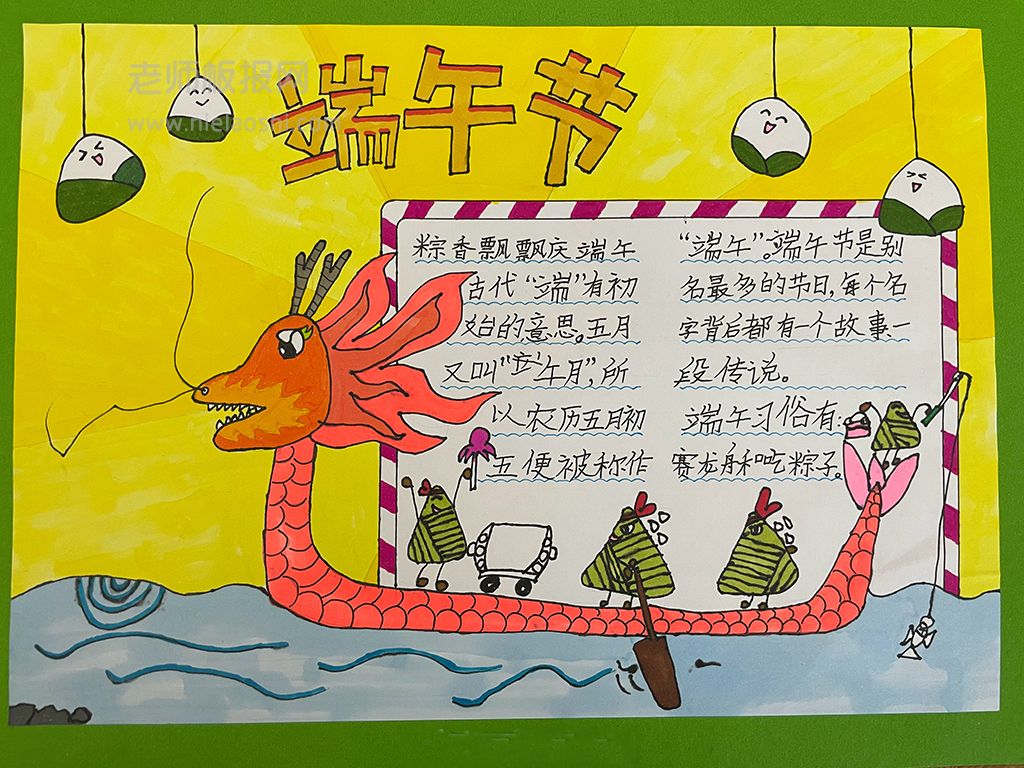 老师板报网
端午节
粽香飘飘庆端午
古代“端”有初
始的意思。五月
又叫“午月”，所
以农历五月初
五便被称作
“端午”。端午节是别
名最多的节日，每个名
字背后都有一个故事一
段传说。
端午习俗有：
赛龙舟和吃粽子。